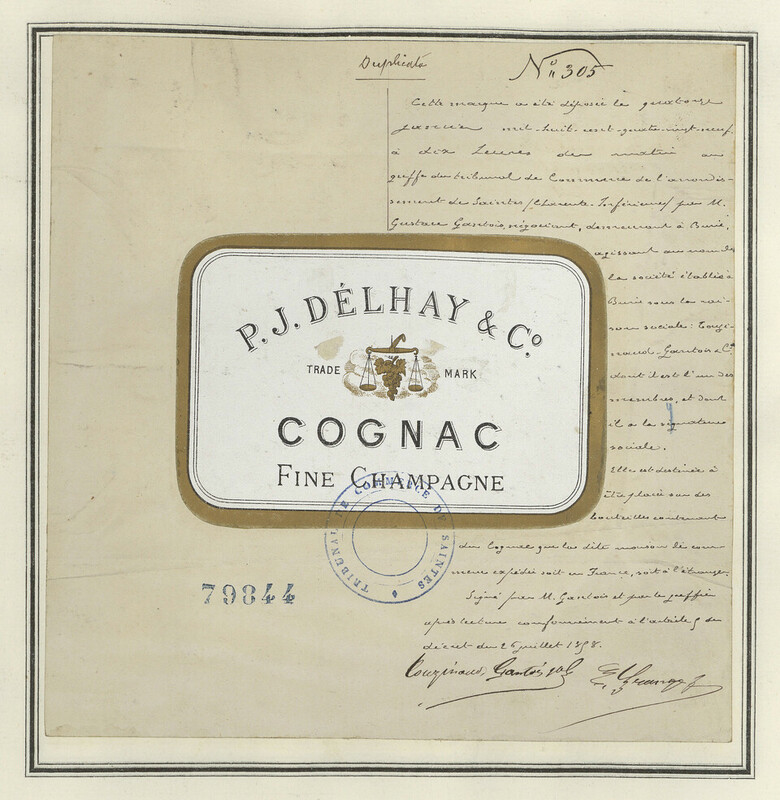 Duplicata
No 305
Cette marque a été déposée le quatorze
janvier mil-huit-cent-quatre-vingt-neuf
à dix heures du matin au
greffe du tribunal de Commerce de l'arrondis-
sement de Saintes (Charente-Inférieure) par M.
Gustave Gantois, négociant, demeurant à Burie,
agissant au nom de
la société établie à
Burie sous la rai-
son sociale: Touzi-
naud, Gantois & Cie
dont il est l'un des
membres, et dont
il a la signature
sociale.
Elle est destinée à
être placée sur des
bouteilles contenant
du Cognac que la dite maison de com-
merce expédie soit en France, soit à l'étranger.
Signé par M. Gantois et par le greffier
après lecture conformément à l'article 5 du
décret du 26 juillet 1858.
Touzinaud, Gantois
P.J. DÉLHAY & Co.
TRADE MARK
COGNAC
FINE CHAMPAGNE
TRIBUNAL DE COMMERCE DE SAINTES
79844